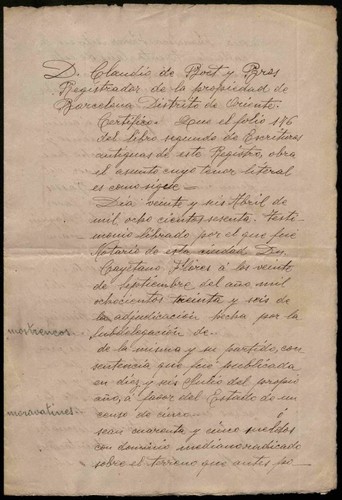 D. Claudio de Bost y Bres
Registrador de la propiedad de
Barcelona Distrito de Oriente.
Certifico: Que el folio 116
del libro segundo de Escrituras
antiguas de este Registro, obra
el asiento cuyo tenor literal
es como sigue =
Dia veinte y seis Abril de
mil ochocientos sesenta. Testi-
monio librado por el que fué
Notario de esta ciudad Don
Cayetano Flores á los veinte
de septiembre del año mil
ochocientos treinta y seis de
la adjudicacion hecha por la
mostrencos
Subdelegacion de
de la misma y su partido, con
sentencia que fué publicada
en diez y seis Julio del propio
año, á favor del Estado de un
moravatines
censo de cinco ó
sean cuarenta y cinco sueldos
con dominio mediano radicado
sobre el terreno que antes fué